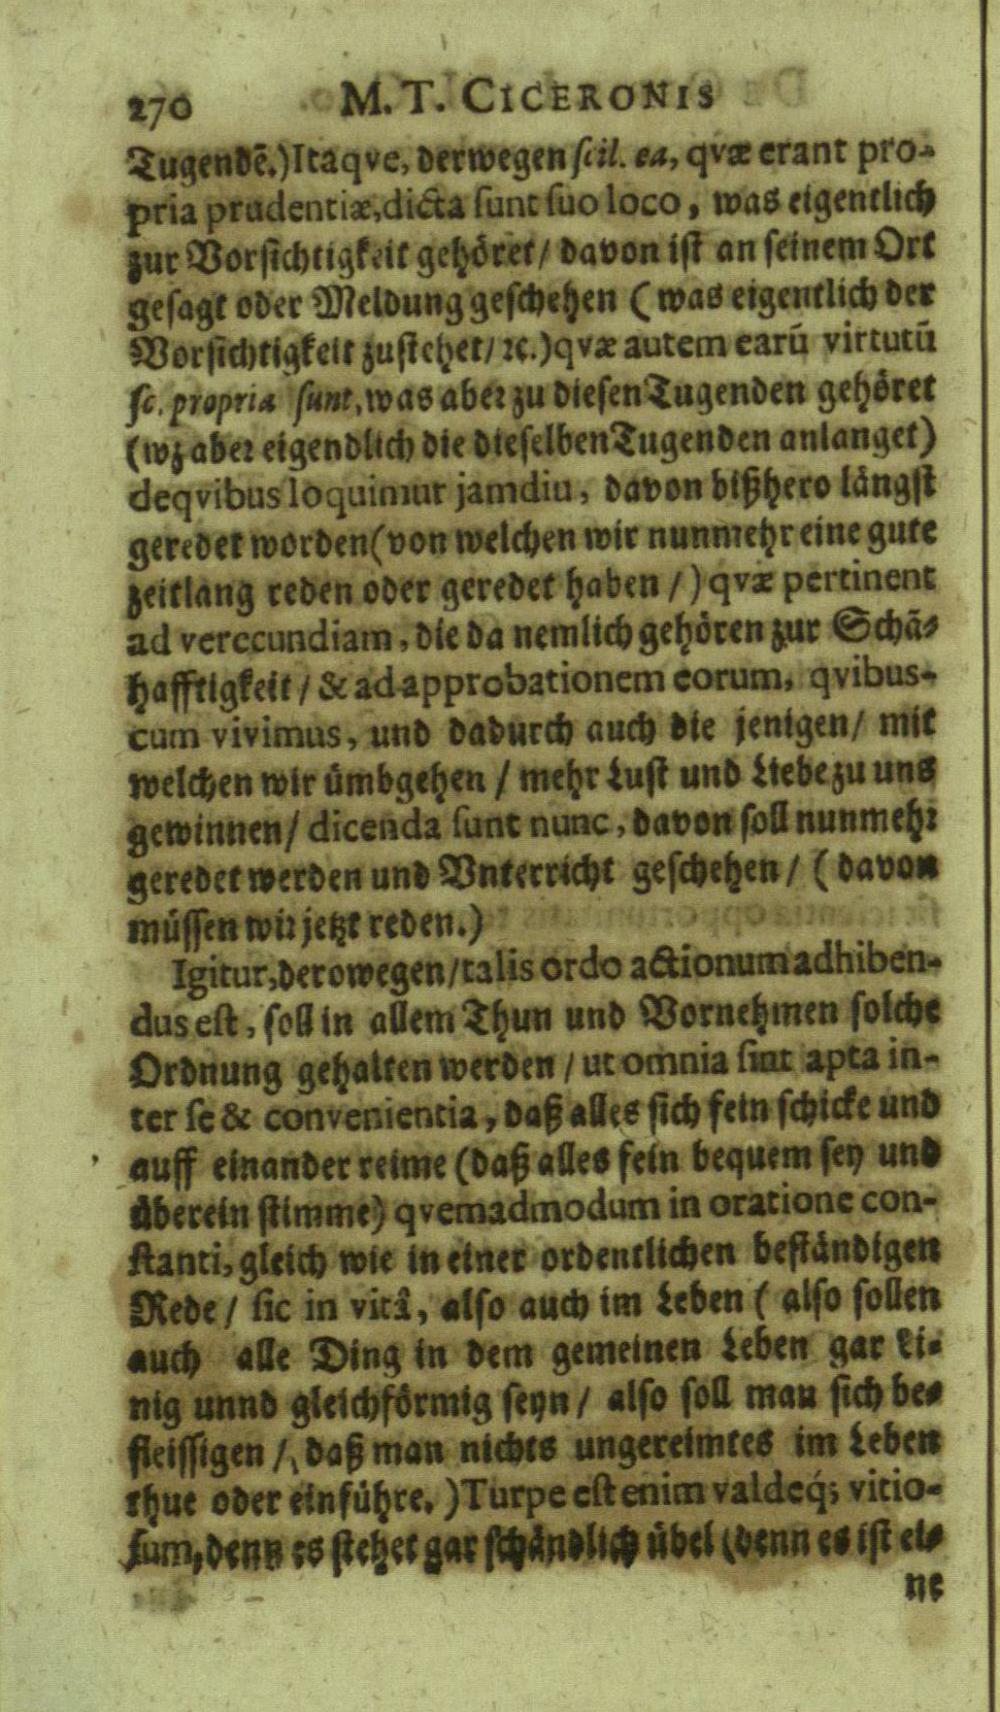 270 M. T. CICERONIS
Tugendē.) Itaqve, derwegen scil. ea, qvæ erant pro-
pria prudentiæ, dicta sunt suo loco, was eigentlich
zur Vorsichtigkeit gehöret / davon ist an seinem Ort
gesagt oder Meldung geschehen (was eigentlich der
Vorsichtigkeit zustehet / ꝛc.) qvæ autem earū virtutū
sc. propria sunt, was aber zu diesen Tugenden gehöret
(wz aber eigendlich die dieselben Tugenden anlanget)
deqvibus loquimur jamdiu, davon bißhero längst
geredet worden (von welchen wir nunmehr eine gute
zeitlang reden oder geredet haben /) qvæ pertinent
ad verecundiam, die da nemlich gehören zur Schā-
hafftigkeit / & ad approbationem eorum, qvibus-
cum vivimus, und dadurch auch die jenigen / mit
welchen wir ümbgehen / mehr Lust und Liebe zu uns
gewinnen / dicenda sunt nunc, davon soll nunmehr
geredet werden und Vnterricht geschehen / (davon
müssen wir jetzt reden.)
Igitur, derowegen / talis ordo actionum adhiben-
dus est, soll in allem Thun und Vornehmen solche
Ordnung gehalten werden / ut omnia sint apta in-
ter se & convenientia, daß alles sich fein schicke und
auff einander reime (daß alles fein bequem sey und
überein stimme) qvemadmodum in oratione con-
stanti, gleich wie in einer ordentlichen beständigen
Rede / sic in vitâ, also auch im Leben (also sollen
auch alle Ding in dem gemeinen Leben gar ei-
nig unnd gleichförmig seyn / also soll man sich be-
fleissigen / daß man nichts ungereimtes im Leben
thue oder einführe.) Turpe est enim valdeq́; vitio-
sum, denn es stehet gar schändlich übel (denn es ist ei-
ne